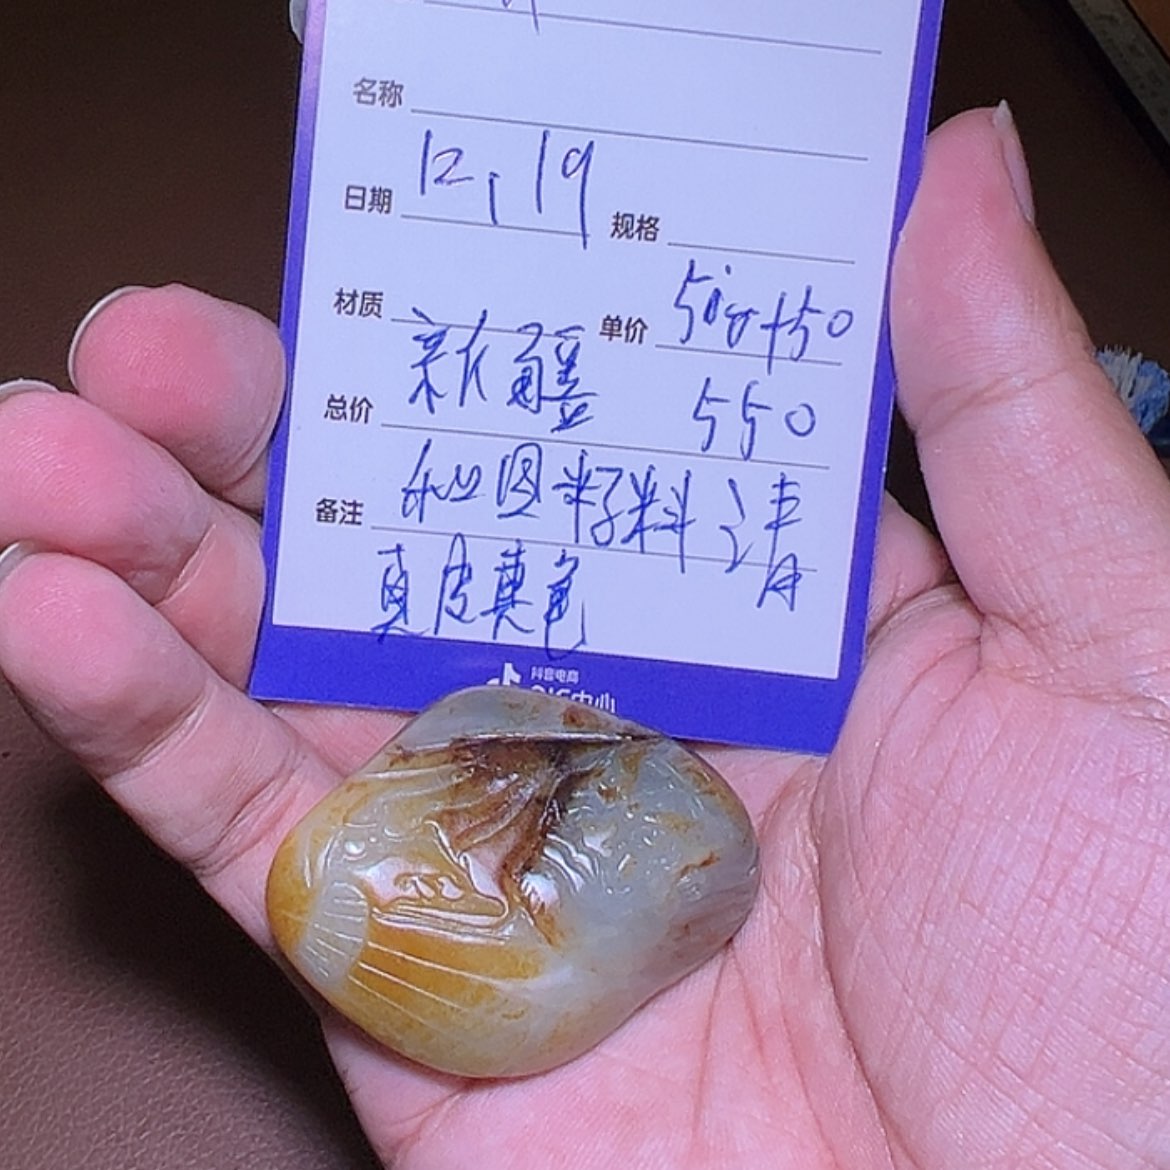 名称
日期 12.19 规格
材质 新疆 单价 5ig+50
总价 550
备注 和田籽料 请
真皮真色
抖音电商
QIC中心